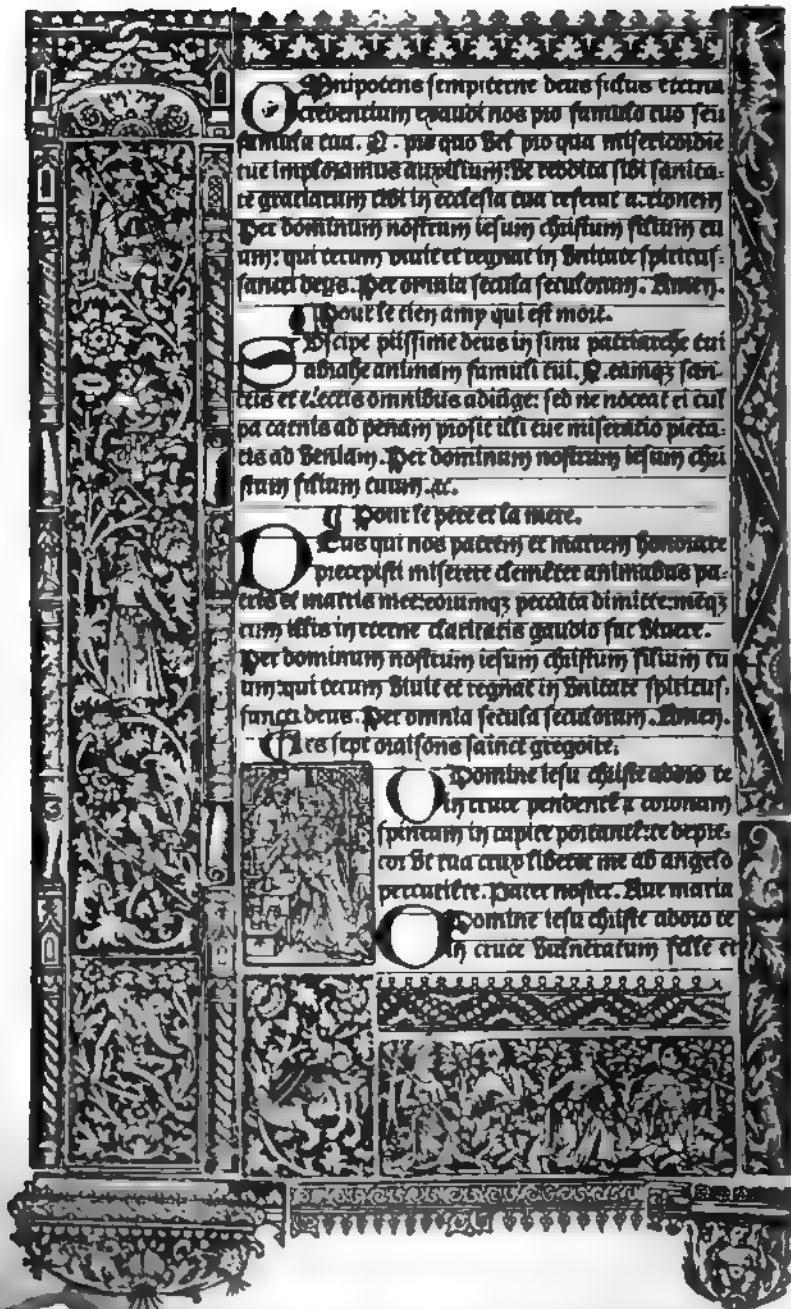 OMnipotens sempiterne deus salus eterna
credentium exaudi nos pro famulo tuo seu
famula tua. N. pro quo vel pro qua misericordie
tue imploramus auxilium: vt reddita sibi sanita-
te graciarum tibi in ecclesia tua referat actionem
Per dominum nostrum iesum christum filium tu
um: qui tecum viuit et regnat in vnitate spiritus-
sancti deus. Per omnia secula seculorum. Amen.
¶ Pour le tien amy qui est mort.
SVscipe piissime deus in sinu patriarche tui
abrahe animam famuli tui. N. eamq; san-
ctis et electis omnibus adiūge: sed ne noceat ei cul
pa carnis ad penam prosit illi tue miseratio pieta-
tis ad veniam. Per dominum nostrum iesum chri
stum filium tuum. ⁊c.
¶ Pour le pere et la mere.
DEus qui nos patrem et matrem honorare
precepisti miserere clemēter animabus pa-
tris et matris mee: eorumq; peccata dimitte: meq;
cum illis in eterne claritatis gaudio fac viuere.
Per dominum nostrum iesum christum filium tu
um: qui tecum viuit et regnat in vnitate spiritus-
sancti deus. Per omnia secula seculorum. Amen.
¶ Les sept oraisons sainct gregoire.
O Domine iesu christe adoro te
in cruce pendentē ⁊ coronam
spineam in capite portantē: te depre-
cor vt tua crux liberet me ab angelo
percutiēte. Pater noster. Aue maria
O Domine iesu christe adoro te
in cruce vulneratum felle et